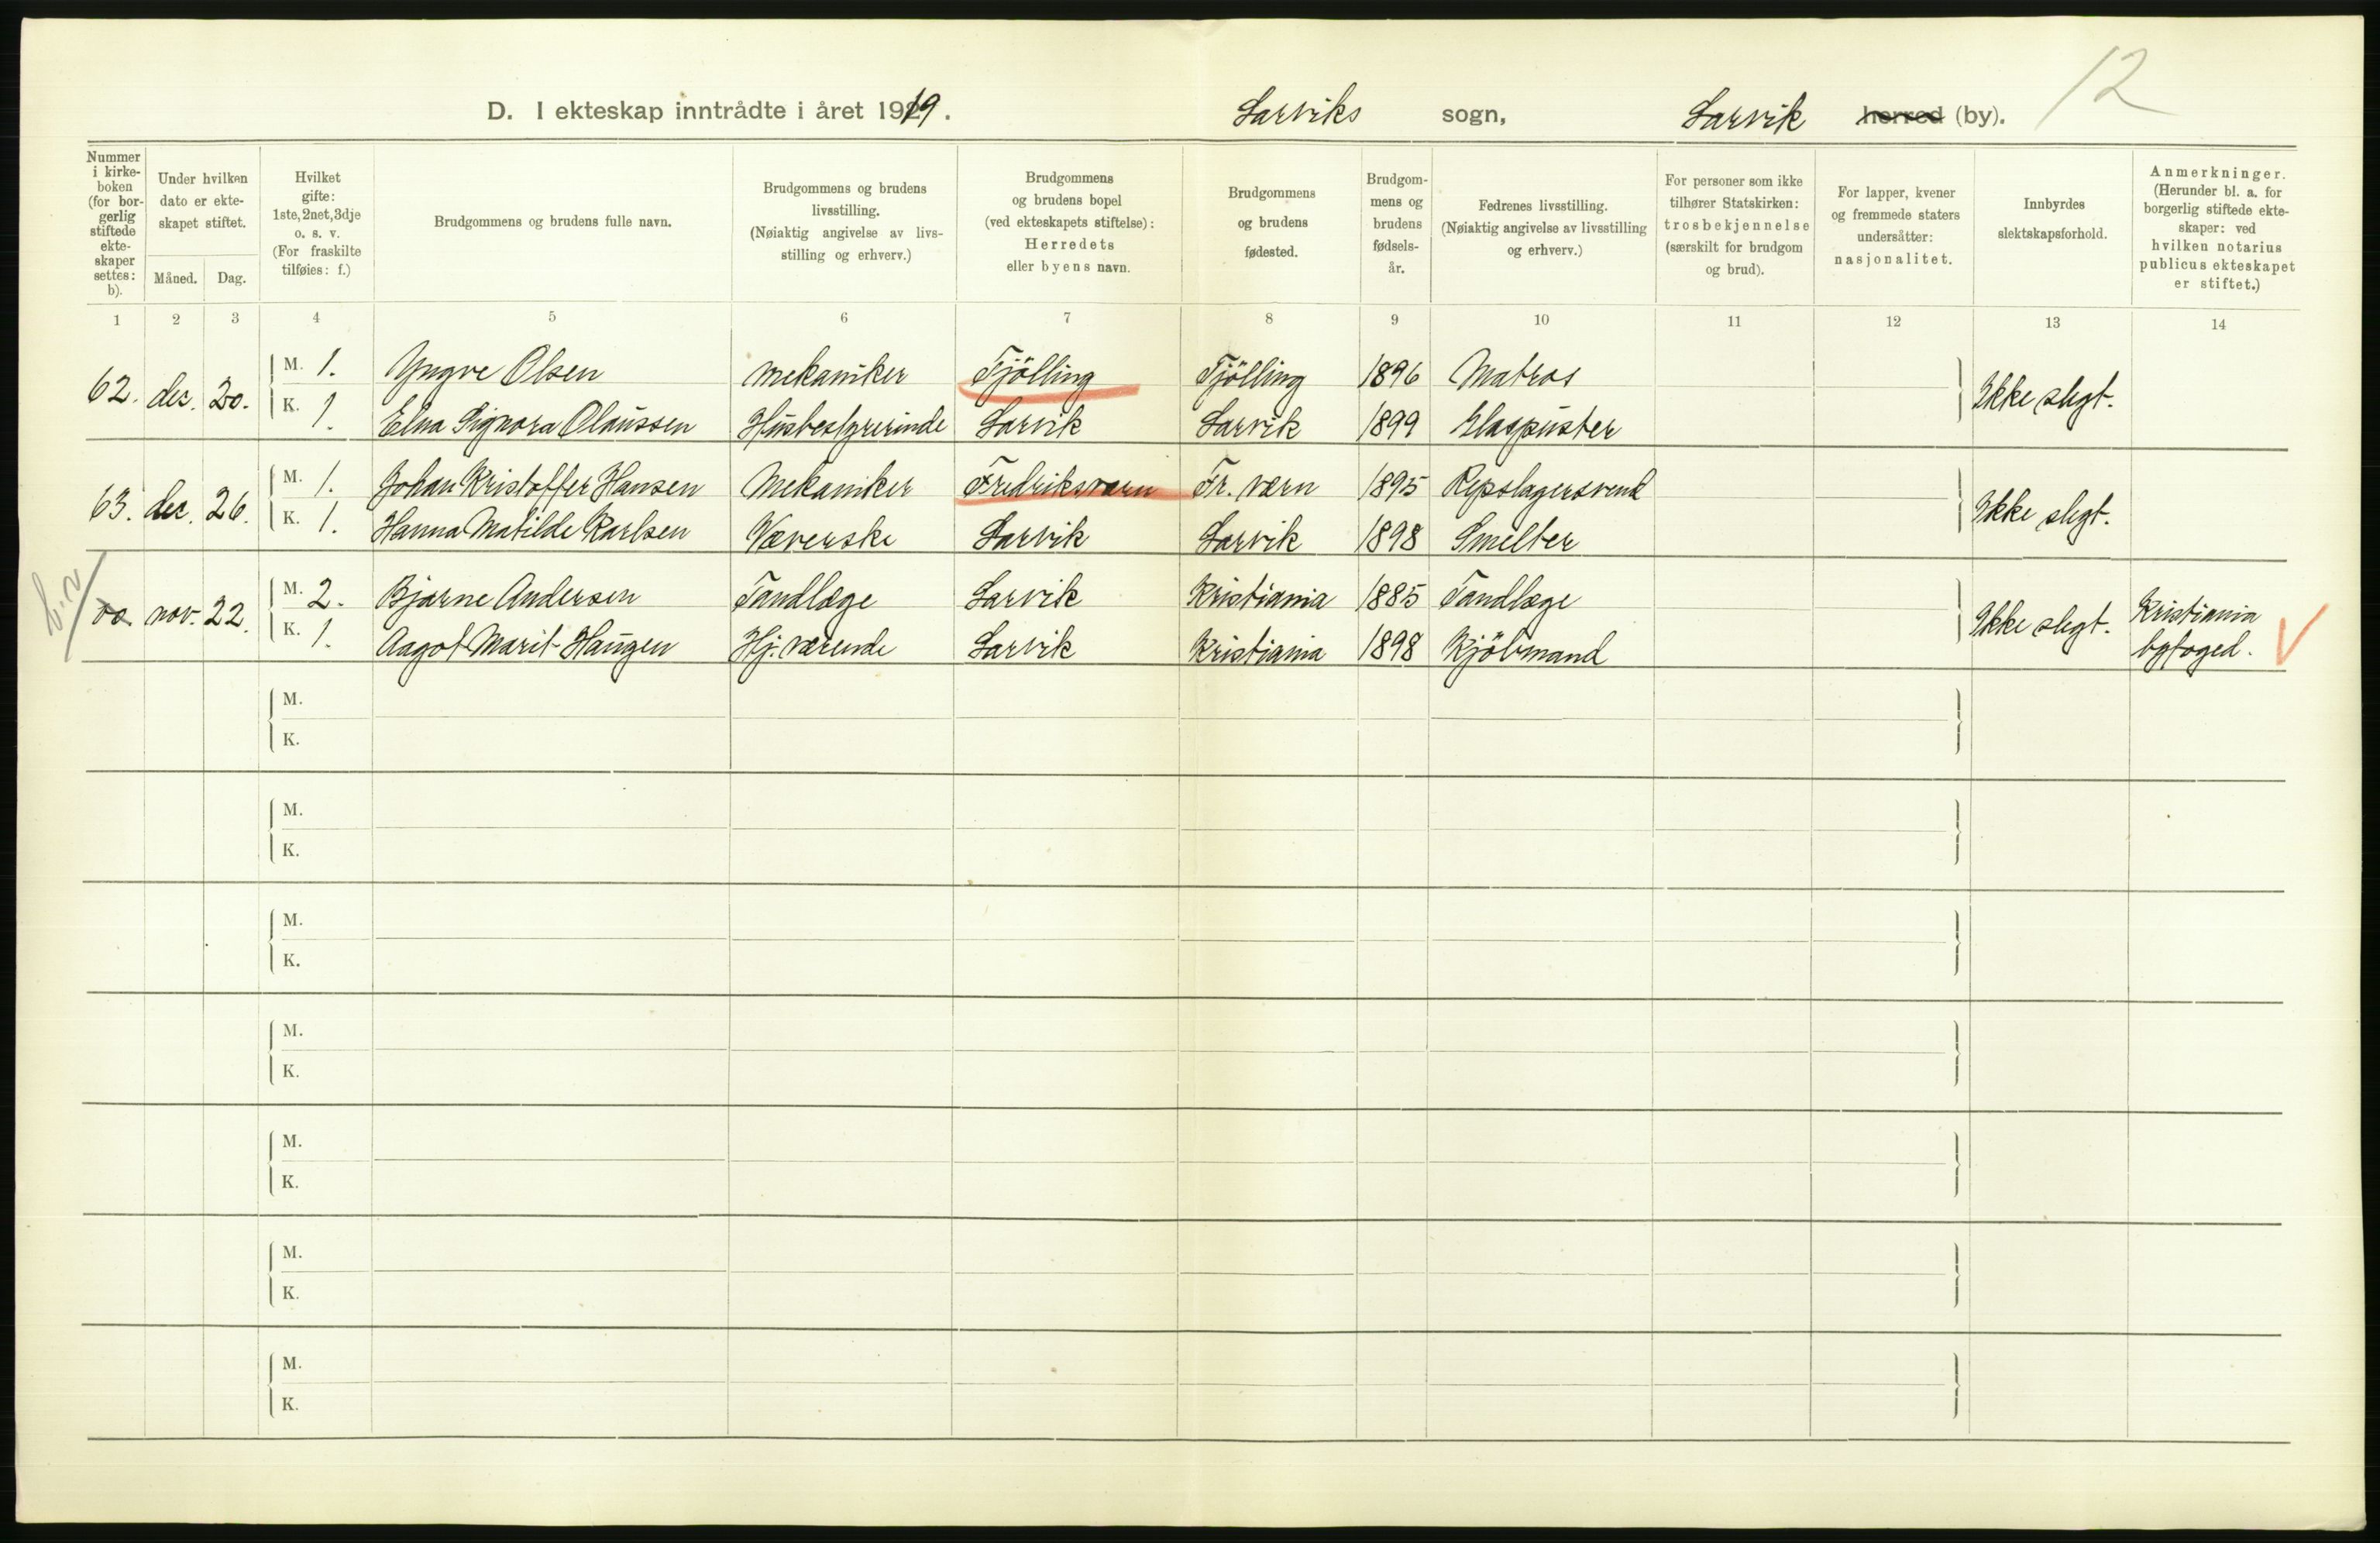 12
D. I ekteskap inntrådte i året 1919. Larviks sogn, Larvik herred (by).
Nummer i kirkeboken (for borgerlig stiftede ekteskaper settes: b).
Under hvilken dato er ekteskapet stiftet.
Måned. Dag.
Hvilket gifte: 1ste, 2net, 3dje o. s. v. (For fraskilte tilføies: f.)
Brudgommens og brudens fulle navn.
Brudgommens og brudens livsstilling. (Nøiaktig angivelse av livsstilling og erhverv.)
Brudgommens og brudens bopel (ved ekteskapets stiftelse): Herredets eller byens navn.
Brudgommens og brudens fødested.
Brudgommens og brudens fødselsår.
Fedrenes livsstilling. (Nøiaktig angivelse av livsstilling og erhverv.)
For personer som ikke tilhører Statskirken: trosbekjennelse (særskilt for brudgom og brud).
For lapper, kvener og fremmede staters undersåtter: nasjonalitet.
Innbyrdes slektskapsforhold.
Anmerkninger. (Herunder bl. a. for borgerlig stiftede ekteskaper: ved hvilken notarius publicus ekteskapet er stiftet.)
1 2 3 4 5 6 7 8 9 10 11 12 13 14
62. dec. 20. M. 1. Yngve Olsen mekaniker Tjölling Tjölling 1896 Matros Ikke slegt.
K. 1. Elna Signora Olaussen Husbestyrerinde Larvik Larvik 1899 Glaspuster
63. dec. 26. M. 1. Johan Kristoffer Hansen Mekaniker Fredriksværn Fr. værn 1895 Repslagersvend Ikke slegt.
K. 1. Hanna Matilde Karlsen Væverske Larvik Larvik 1898 Smelter
nov. 22. M. 2. Bjarne Andersen Tandlæge Larvik Kristiania 1885 Tandlæge Ikke slegt. Kristiania
K. 1. Aagot Marit Haugen Hj. værende Larvik Kristiania 1898 Kjöbmand byfoged.
M.
K.
M.
K.
M.
K.
M.
K.
M.
K.
M.
K.
M.
K.